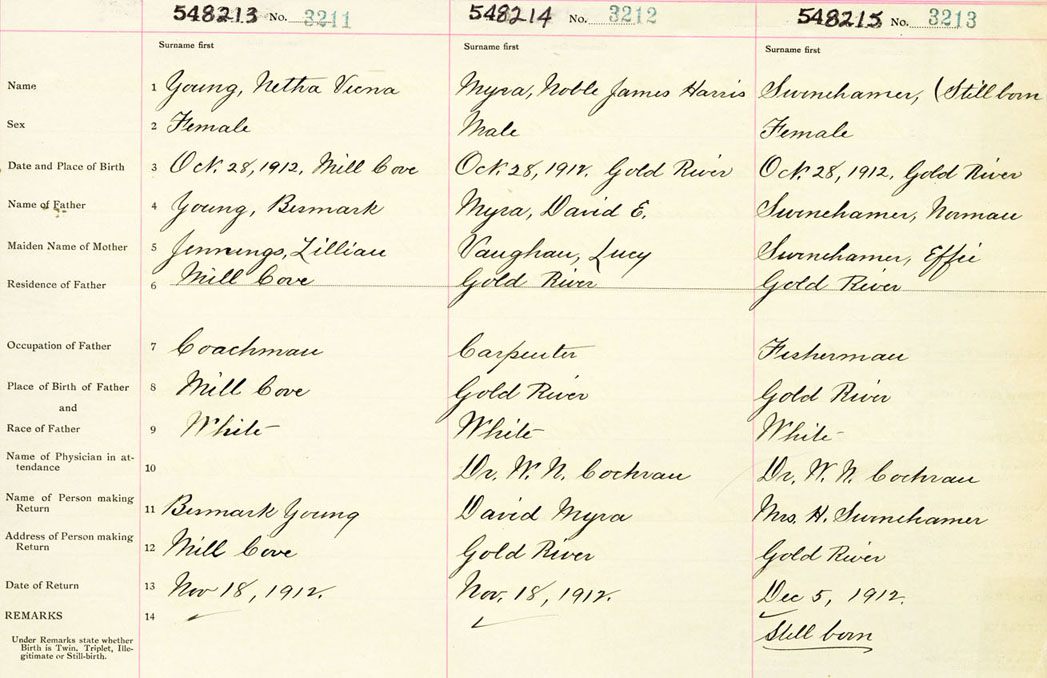 548213 No. 3211 548214 No. 3212 548215 No. 3213
Surname first Surname first Surname first
Name 1 Young, Netha Viena Myra, Noble James Harris Swinehamer, (Still born
Sex 2 Female Male Female
Date and Place of Birth 3 Oct. 28, 1912, Mill Cove Oct. 28, 1912. Gold River Oct. 28, 1912, Gold River
Name of Father 4 Young, Bismark Myra, David E. Swinehamer, Norman
Maiden Name of Mother 5 Jennings, Lillian Vaughan, Lucy Swinehamer, Effie
Residence of Father 6 Mill Cove Gold River Gold River
Occupation of Father 7 Coachman Carpenter Fisherman
Place of Birth of Father 8 Mill Cove Gold River Gold River
and
Race of Father 9 White White White
Name of Physician in at-
tendance 10 Dr. W. N. Cochran Dr. W. N. Cochran
Name of Person making
Return 11 Bismark Young David Myra Mrs. H. Swinehamer
Address of Person making
Return 12 Mill Cove Gold River Gold River
Date of Return 13 Nov 18, 1912. Nov. 18, 1912. Dec 5, 1912.
REMARKS 14
Still born
Under Remarks state whether
Birth is Twin, Triplet, Ille-
gitimate or Still-birth.